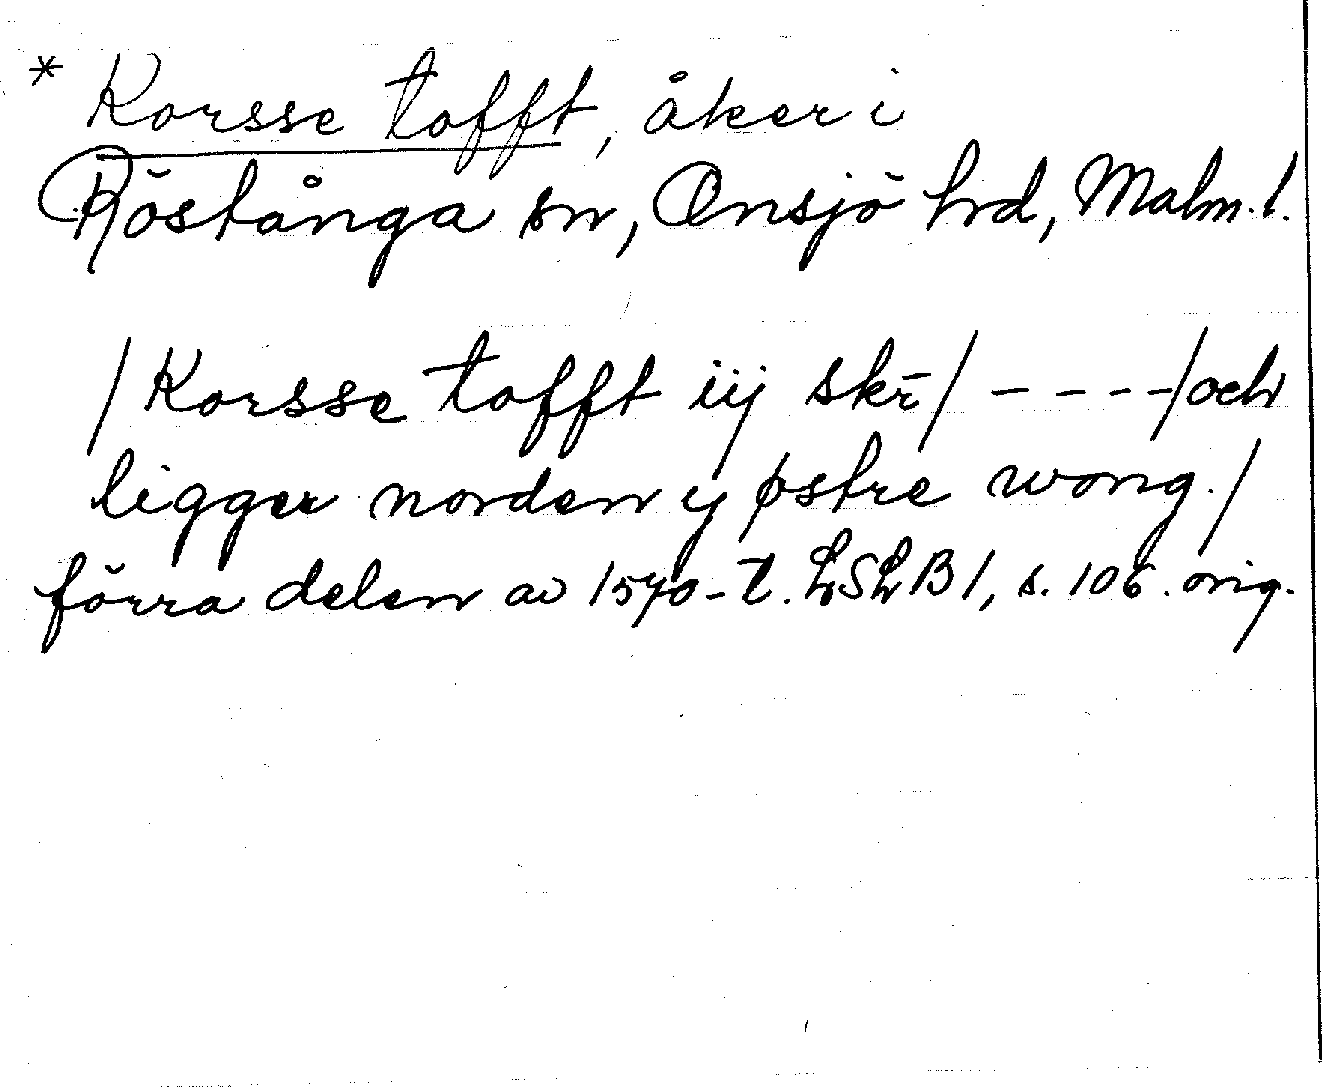 * Korsse tofft, åker i
Röstånga sn, Onsjö hrd, Malm. l.
/Korsse tofft iij skr̄/ - - - -/och
ligger norden y østre wong./
förra delen av 1570-t. LSLB 1, s. 106. orig.